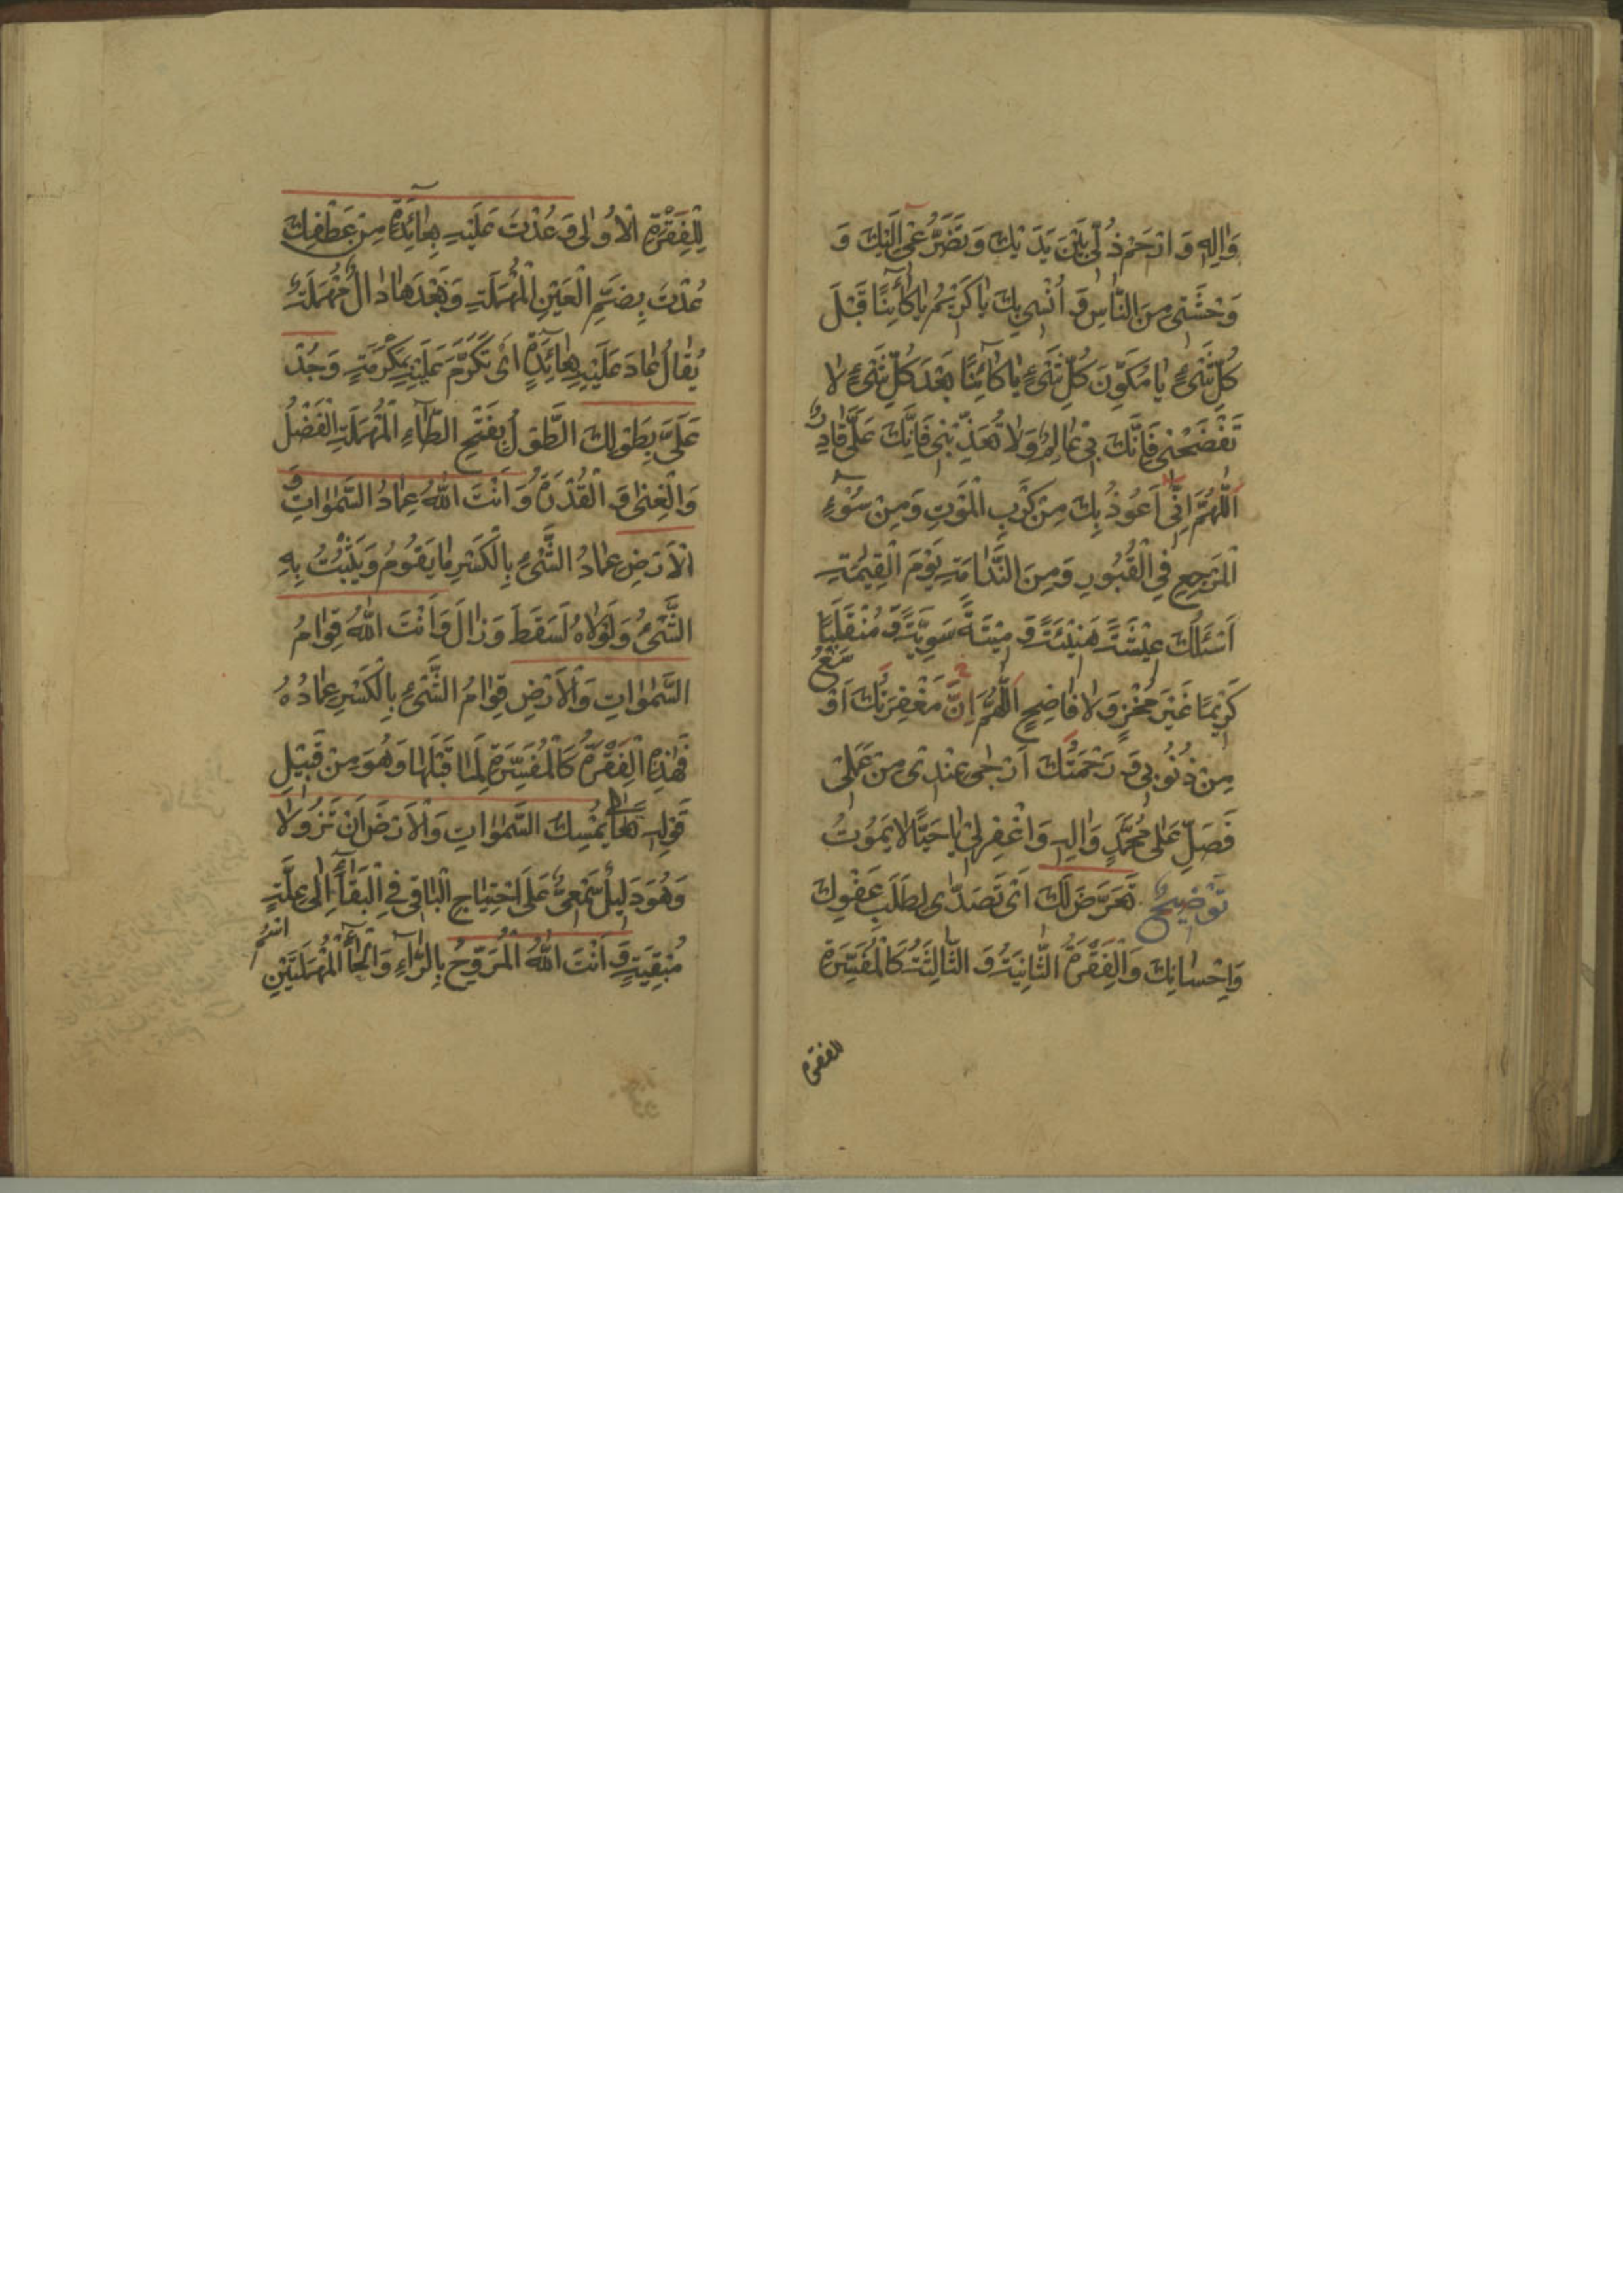 وَالِهِ وَارْحَمْ ذُلّى بَيْنَ يَدَيْكَ وَتَضَرُّعى اِلَيْكَ وَ
وَحْشَتى مِنَ النَّاسِ وَ اُنْسى بِكَ يٰا كَريْمُ يٰا كٰائِنًا قَبْلَ
كُلِّ شَىْءٍ يٰا مُكَوِّنَ كُلِّ شَىْءٍ يٰا كٰائِنًا بَعْدَ كُلِّ شَىْءٍ لٰا
تَفْضَحْنى فَاِنَّكَ بى عٰالِمٌ وَلٰا تُعَذِّبْنى فَاِنَّكَ عَلَىَّ قٰادِرٌ
اَللّٰهُمَّ اِنّى اَعُوْذُ بِكَ مِنْ كَرْبِ الْمَوْتِ وَمِنْ سُوْءِ
الْمَرْجِعِ فِى الْقُبُورِ وَمِنَ النَّدٰامَةِ يَوْمَ الْقِيٰمَةِ
اَسْئَلُكَ عيْشَةً هَنيْئَةً وَ ميْتَةً سَوِيَّةً وَ مُنْقَلَبًا
كَريْمًا غَيْرَ مُخْزٍ وَلٰا فٰاضِحٍ اَللّٰهُمَّ اِنَّ مَغْفِرَتَكَ اَوْسَعُ
مِنْ ذُنُوْبى وَ رَحْمَتَكَ اَرْجٰى عِنْدى مِنْ عَمَلى
فَصَلِّ عَلٰى مُحَمَّدٍ وَالِهِ وَاغْفِرْلى يٰا حَيًّا لٰا يَمُوْتُ
تَوْضيحٌ تَعَرَّضَ لَكَ اَىْ تَصَدّٰى لِطَلَبِ عَفْوِكَ
وَاِحْسٰانِكَ وَالْفِقْرَةُ الثّٰانِيَةُ وَ الثّٰالِثَةُ كَالْمُفَسِّرَةِ
للفقرة
لِلْفِقْرَةِ الْاُوْلٰى وَعُدْتَ عَلَيْهِ بِعٰائِدَةٍ مِنْ عَطْفِكَ
عُدْتَ بِضَمِّ الْعَيْنِ الْمُهْمَلَةِ وَبَعْدَهٰا دٰالٌ مُهْمَلَةٌ
يُقٰالُ عٰادَ عَلَيْهِ بِعٰائِدَةٍ اَىْ تَكَرَّمَ عَلَيْهِ بِمَكْرُمَةٍ وَجُدْ
عَلَىَّ بِطَوْلِكَ الطَّوْلُ بِفَتْحِ الطّٰاءِ الْمُهْمَلَةِ الْفَضْلُ
وَالْغِنٰى وَ الْقُدْرَةُ وَ اَنْتَ اللّٰهُ عِمٰادُ السَّمٰوٰاتِ وَ
الْاَرْضِ عِمٰادُ الشَّىْءِ بِالْكَسْرِ مٰا يَقُوْمُ وَيَثْبُتُ بِهِ
الشَّىْءُ وَلَوْلٰاهُ لَسَقَطَ وَزٰالَ وَاَنْتَ اللّٰهُ قِوٰامُ
السَّمٰوٰاتِ وَالْاَرْضِ قِوٰامُ الشَّىْءِ بِالْكَسْرِ عِمٰادُهُ
فَهٰذِهِ الْفِقْرَةُ كَالْمُفَسِّرَةِ لِمٰا قَبْلَهٰا وَهُوَ مِنْ قَبيْلِ
قَوْلِهِ تَعٰالٰى يُمْسِكُ السَّمٰوٰاتِ وَالْاَرْضَ اَنْ تَزُوْلٰا
وَهُوَ دَليْلٌ سَمْعِىٌّ عَلَى احْتِيٰاجِ الْبٰاقى فِى الْبَقٰاءِ اِلٰى عِلَّةٍ
مُبْقِيَةٍ وَ اَنْتَ اللّٰهُ الْمُرَوِّحُ بِالرّٰاءِ وَالْحٰاءِ الْمُهْمَلَتَيْنِ